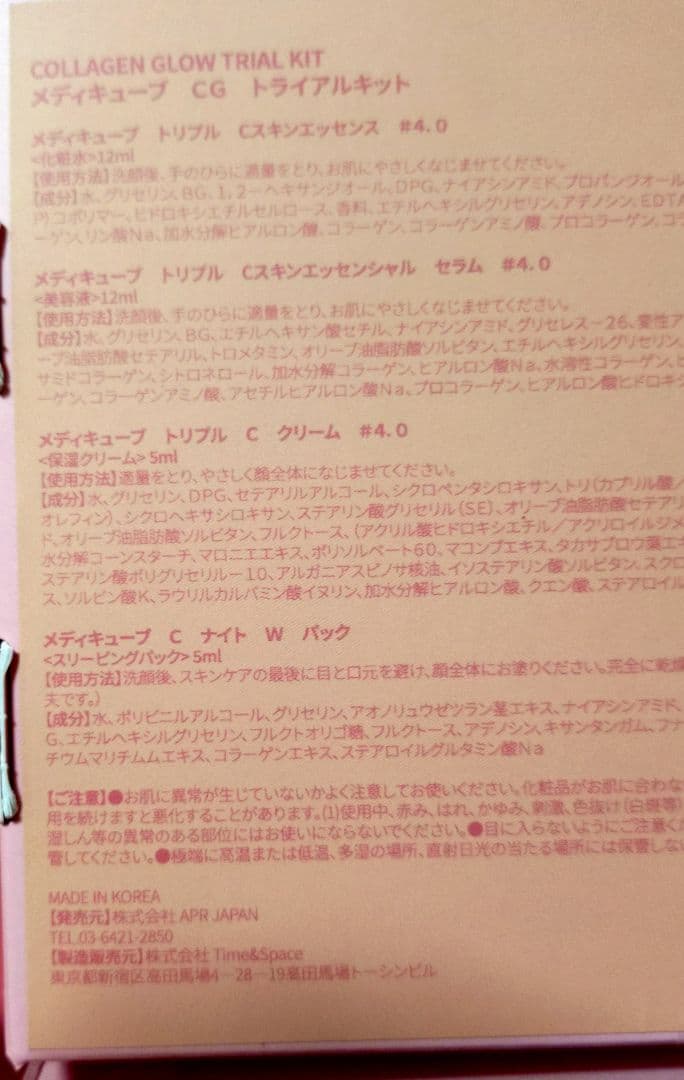 COLLAGEN GLOW TRIAL KIT
メディキューブ　CG　トライアルキット
メディキューブ　トリプル　Cスキンエッセンス　#4.0
<化粧水>12ml
【使用方法】洗顔後、手のひらに適量をとり、お肌にやさしくなじませてください。
【成分】水、グリセリン、BG、1,2-ヘキサンジオール、DPG、ナイアシンアミド、プロパンジオール
P)コポリマー、ヒドロキシエチルセルロース、香料、エチルヘキシルグリセリン、アデノシン、EDTA
ーゲン、リン酸Na、加水分解ヒアルロン酸、コラーゲン、コラーゲンアミノ酸、プロコラーゲン、コラ
メディキューブ　トリプル　Cスキンエッセンシャル　セラム　#4.0
<美容液>12ml
【使用方法】洗顔後、手のひらに適量をとり、お肌にやさしくなじませてください。
【成分】水、グリセリン、BG、エチルヘキサン酸セチル、ナイアシンアミド、グリセレス-26、変性ア
ーブ油脂肪酸セテアリル、トロメタミン、オリーブ油脂肪酸ソルビタン、エチルヘキシルグリセリン、
サミドコラーゲン、シトロネロール、加水分解コラーゲン、ヒアルロン酸Na、水溶性コラーゲン、ヒ
ーゲン、コラーゲンアミノ酸、アセチルヒアルロン酸Na、プロコラーゲン、ヒアルロン酸ヒドロキシ
メディキューブ　トリプル　C　クリーム　#4.0
<保湿クリーム> 5ml
【使用方法】適量をとり、やさしく顔全体になじませてください。
【成分】水、グリセリン、DPG、セテアリルアルコール、シクロペンタシロキサン、トリ(カプリル酸/
オレフィン)、シクロヘキサシロキサン、ステアリン酸グリセリル(SE)、オリーブ油脂肪酸セテアリ
ド、オリーブ油脂肪酸ソルビタン、フルクトース、(アクリル酸ヒドロキシエチル/アクリロイルジメ
水分解コーンスターチ、マロニエエキス、ポリソルベート60、マコンブエキス、タカサブロウ葉エキ
ステアリン酸ポリグリセリル-10、アルガニアスピノサ核油、イソステアリン酸ソルビタン、スクロ
ス、ソルビン酸K、ラウリルカルバミン酸イヌリン、加水分解ヒアルロン酸、クエン酸、ステアロイル
メディキューブ　C　ナイト　W　パック
<スリーピングパック> 5ml
【使用方法】洗顔後、スキンケアの最後に目と口元を避け、顔全体にお塗りください。完全に乾燥
夫です。)
【成分】水、ポリビニルアルコール、グリセリン、アオノリュウゼツラン茎エキス、ナイアシンアミド、
G、エチルヘキシルグリセリン、フルクトオリゴ糖、フルクトース、アデノシン、キサンタンガム、フナ
チウムマリチムムエキス、コラーゲンエキス、ステアロイルグルタミン酸Na
【ご注意】●お肌に異常が生じていないかよく注意してお使いください。化粧品がお肌に合わな
用を続けますと悪化することがあります。(1)使用中、赤み、はれ、かゆみ、刺激、色抜け(白斑等)
湿しん等の異常のある部位にはお使いにならないでください。●目に入らないようにご注意く
管してください。●極端に高温または低温、多湿の場所、直射日光の当たる場所には保管しない
MADE IN KOREA
【発売元】株式会社 APR JAPAN
TEL.03-6421-2850
【製造販売元】株式会社 Time&Space
東京都新宿区高田馬場4-28-19高田馬場トーシンビル